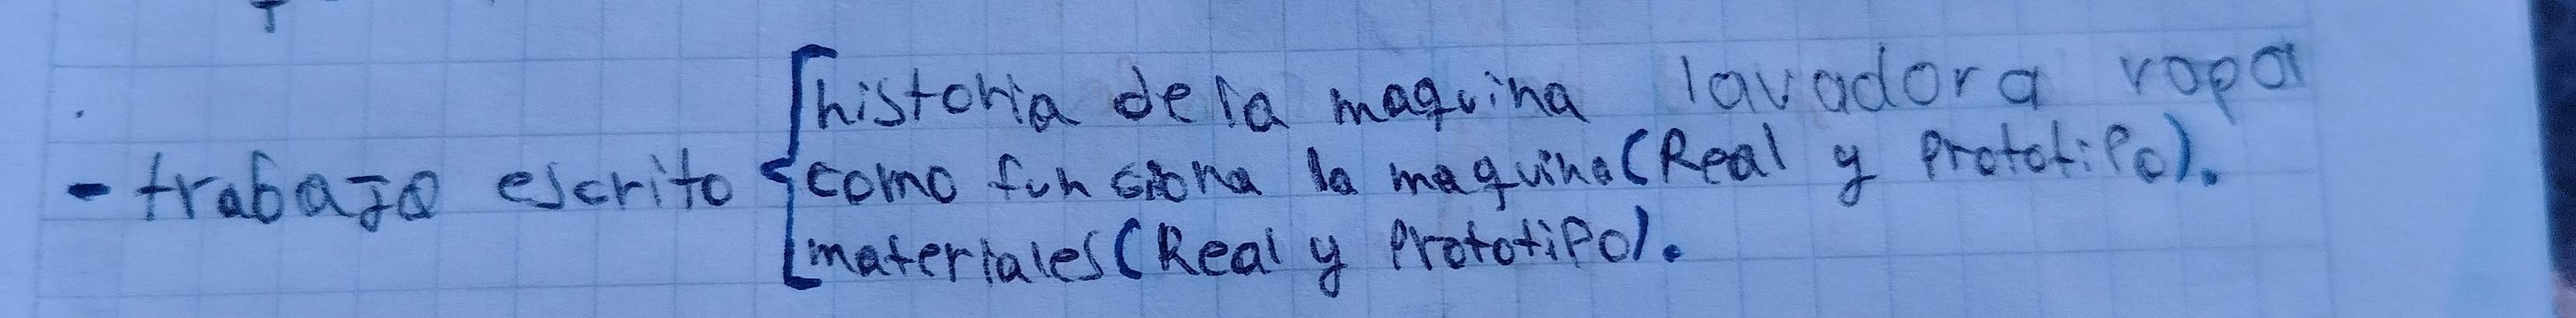 historia de la maquina lavadora ropa
- trabajo escrito como funciona la maquina (Real y Prototipo).
materiales (Real y Prototipo).